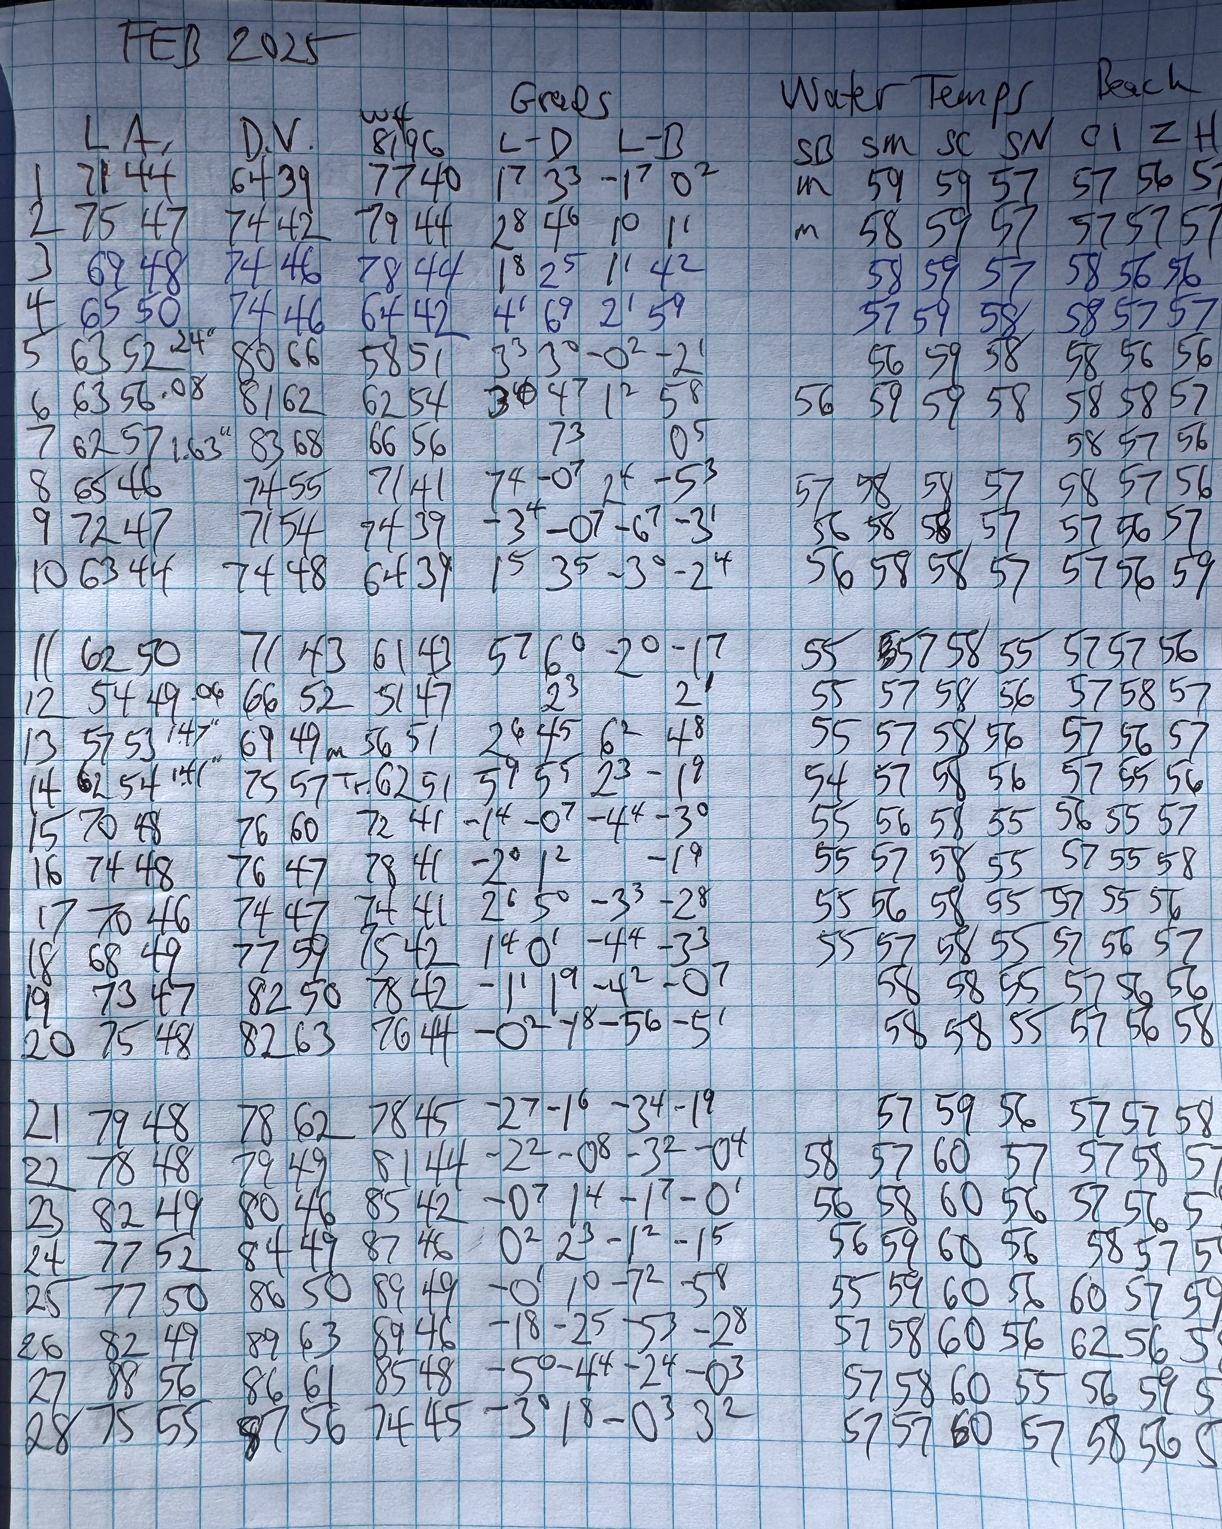 FEB 2025
Grads Water Temps Beach
L A. D.V. wx 8196 L-D L-B SB SM SC SN CI Z H
1 71 44 64 39 77 40 1⁷ 3³ -1⁷ 0² m 59 59 57 57 56 57
2 75 47 74 42 79 44 2⁸ 4⁶ 1⁰ 1¹ m 58 59 57 57 57 57
3 69 48 74 46 78 44 1⁸ 2⁵ 1¹ 4² 58 59 57 58 56 56
4 65 50 74 46 64 42 4¹ 6⁹ 2¹ 5⁹ 57 59 58 58 57 57
5 63 52 .24" 80 66 58 51 3³ 3⁰ -0² -2¹ 56 59 58 58 56 56
6 63 56 .08 81 62 62 54 4⁷ 1² 5⁸ 56 59 59 58 58 58 57
7 62 57 1.63" 83 68 66 56 7³ 0⁵ 58 57 56
8 65 46 74 55 71 41 7⁴ -0⁷ 2⁴ -5³ 57 58 58 57 58 57 56
9 72 47 71 54 74 39 -3⁴ -0⁷ -6⁷ -3¹ 56 58 58 57 57 56 57
10 63 44 74 48 64 39 1⁵ 3⁵ -3⁰ -2⁴ 56 58 58 57 57 56 59
11 62 50 71 43 61 43 5⁷ 6⁰ -2⁰ -1⁷ 55 57 58 55 57 57 56
12 54 49 .06 66 52 51 47 2³ 2¹ 55 57 58 56 57 58 57
13 57 53 1.47" 69 49 m 56 51 2⁶ 4⁵ 6² 4⁸ 55 57 58 56 57 56 57
14 62 54 1.41" 75 57 Tr. 62 51 5⁹ 5⁵ 2³ -1⁹ 54 57 58 56 57 55 56
15 70 48 76 60 72 41 -1⁴ -0⁷ -4⁴ -3⁰ 55 56 58 55 56 55 57
16 74 48 76 47 78 41 -2⁰ 1² -1⁹ 55 57 58 55 57 55 58
17 70 46 74 47 74 41 2⁶ 5⁰ -3³ -2⁸ 55 56 58 55 57 55 56
18 68 49 77 59 75 42 1⁴ 0¹ -4⁴ -3³ 55 57 58 55 57 56 57
19 73 47 82 50 78 42 -1¹ 1⁹ -4² -0⁷ 58 58 55 57 56 56
20 75 48 82 63 76 44 -0² -1⁸ -5⁶ -5¹ 58 58 55 57 56 58
21 79 48 78 62 78 45 -2⁷ -1⁶ -3⁴ -1⁹ 57 59 56 57 57 58
22 78 48 79 49 81 44 -2² -0⁸ -3² -0⁴ 58 57 60 57 57 58 57
23 82 49 80 46 85 42 -0⁷ 1⁴ -1⁷ -0¹ 56 58 60 56 57 56 5
24 77 52 84 49 87 46 0² 2³ -1² -1⁵ 56 59 60 56 58 57 5
25 77 50 86 50 89 49 -0¹ 1⁰ -7² -5⁸ 55 59 60 56 60 57 59
26 82 49 89 63 89 46 -1⁸ -2⁵ -5³ -2⁸ 57 58 60 56 62 56 5
27 88 56 86 61 85 48 -5⁰ -4⁴ -2⁴ -0³ 57 58 60 55 56 59 5
28 75 55 87 56 74 45 -3⁰ 1⁸ -0³ 3² 57 57 60 57 58 56 5